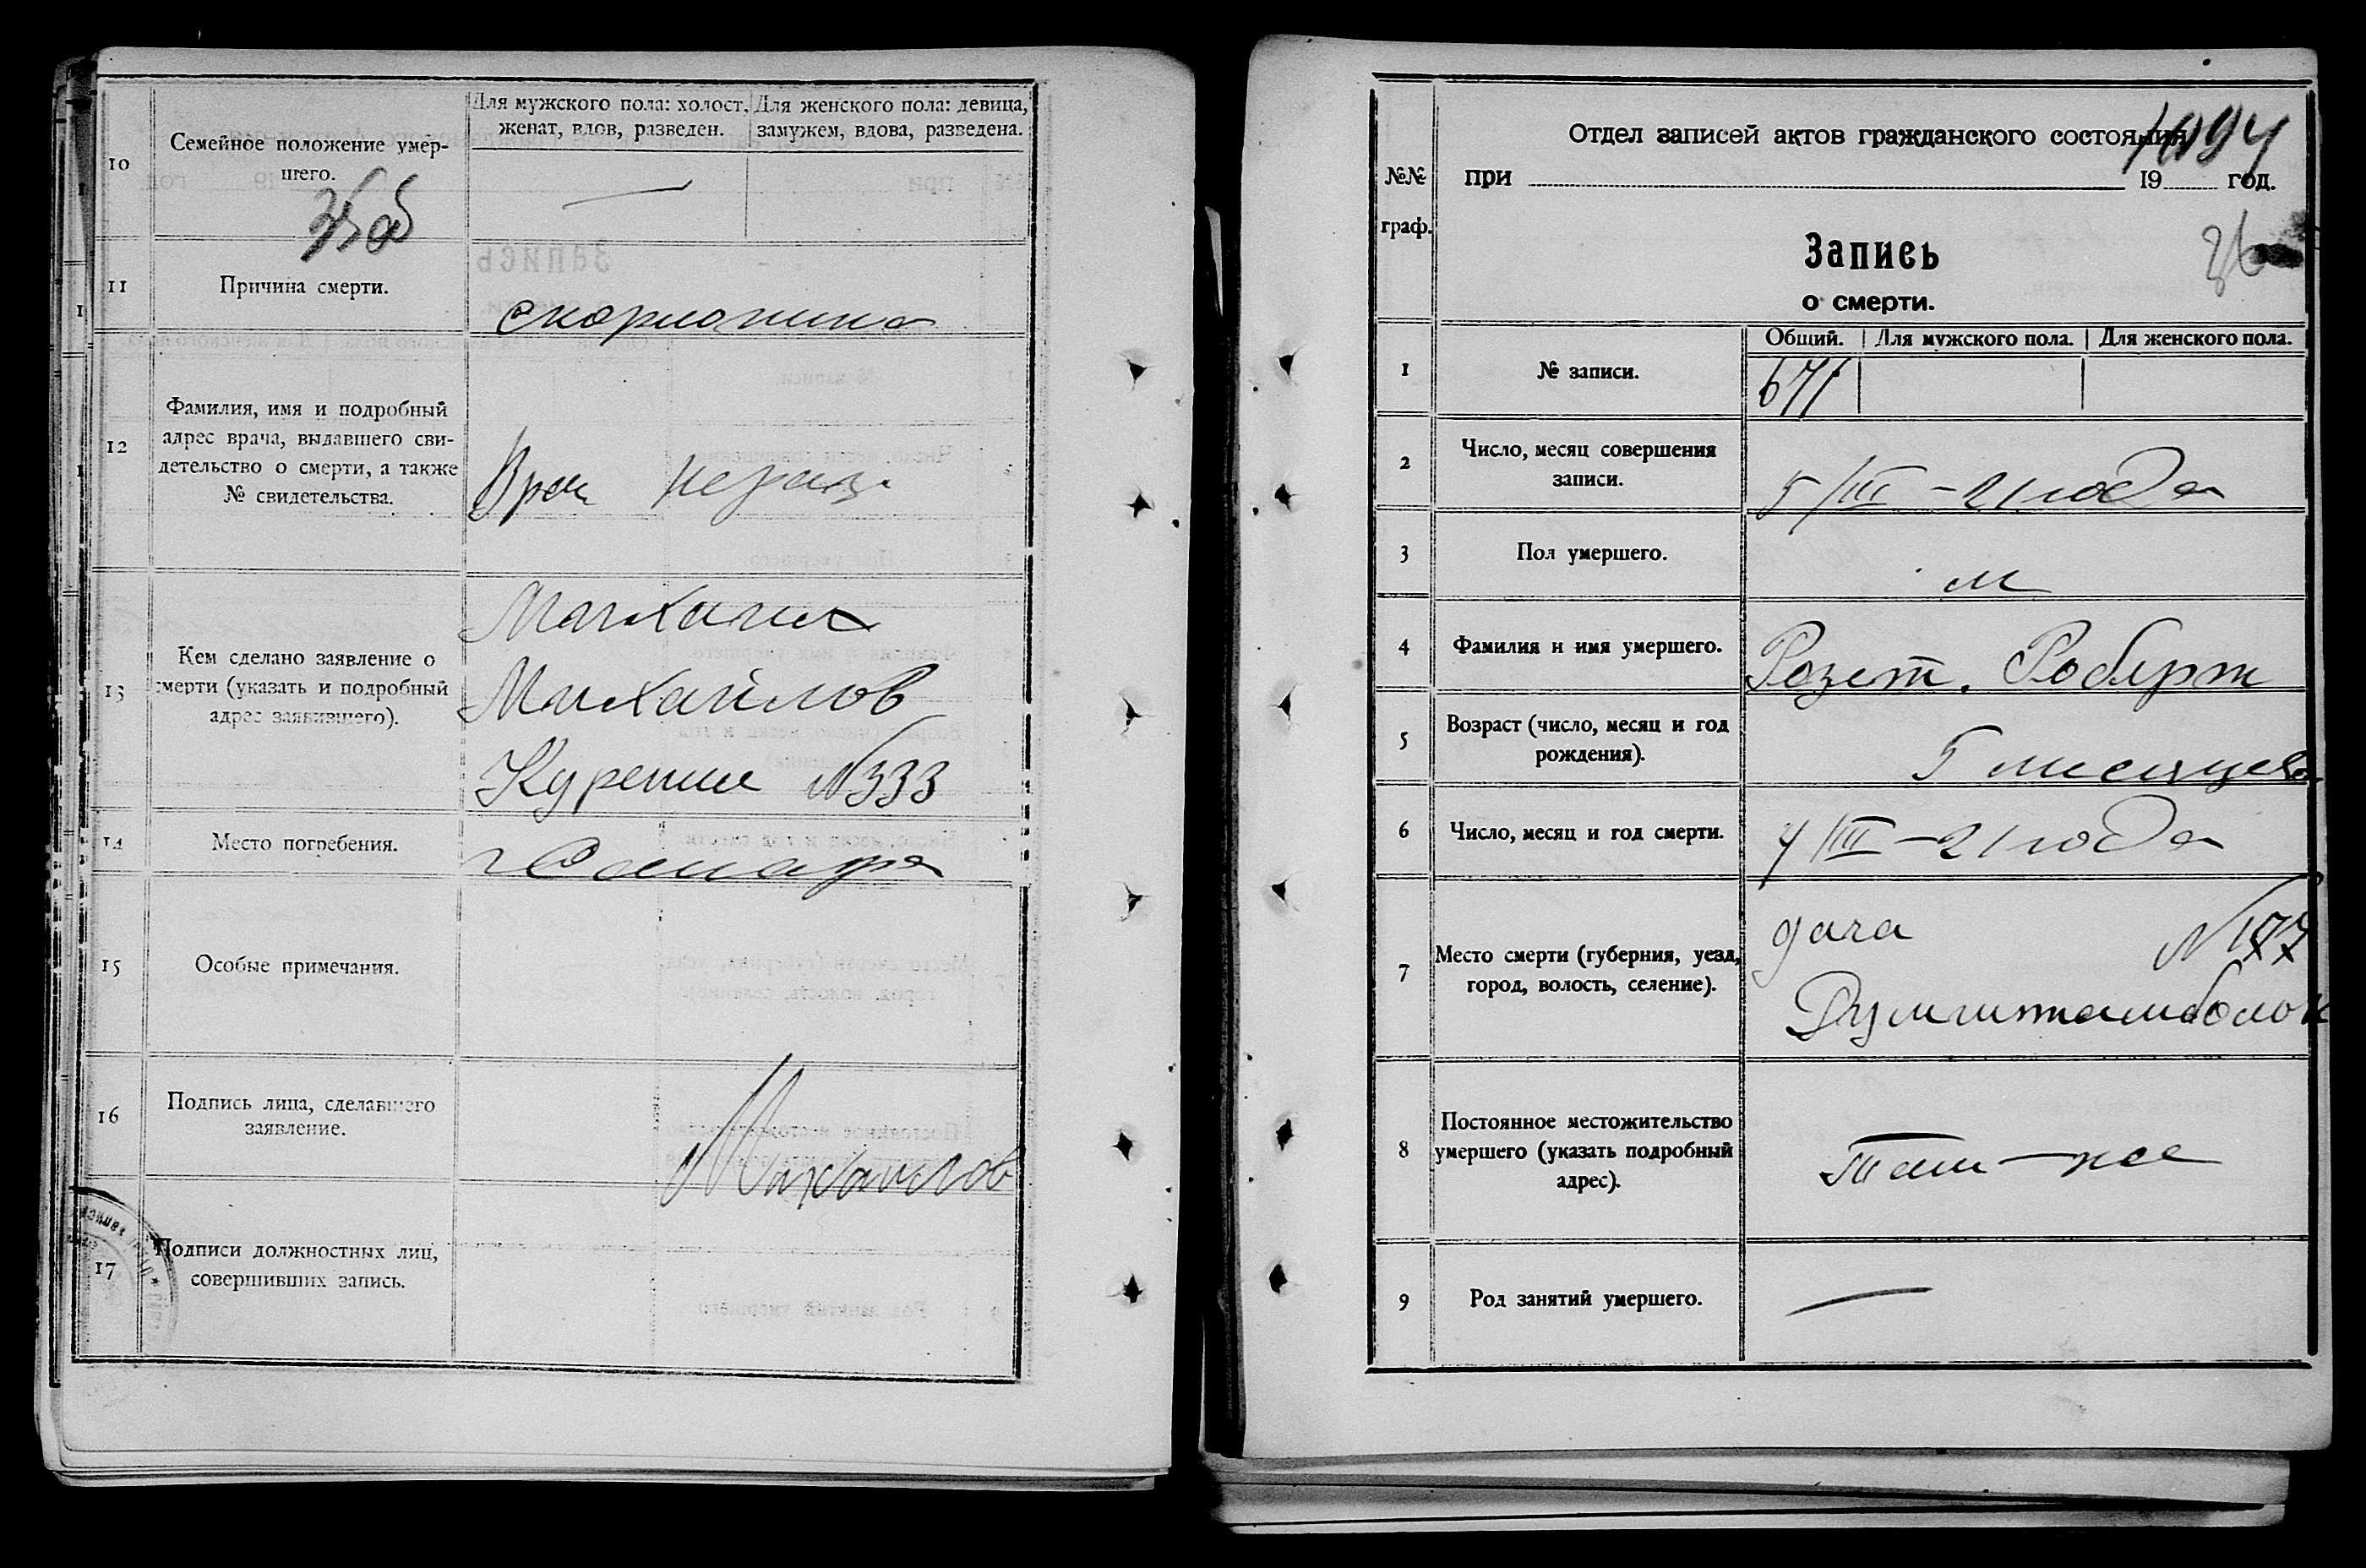 10
Семейное положение умершего.
Для мужского пола: холост, женат, вдов, разведен.
Для женского пола: девица, замужем, вдова, разведена.
—
36 об
11
Причина смерти.
скорлотина
12
Фамилия, имя и подробный
адрес врача, выдавшего сви-
детельство о смерти, а также
№ свидетельства.
Врач
13
Кем сделано заявление о
смерти (указать и подробный
адрес заявившего).
Михаил
Михайлов
Курение N 333
14
Место погребения.
г Самара
15
Особые примечания.
16
Подпись лица, сделавшего
заявление.
Михайлов
17
Подписи должностных лиц,
совершивших запись.
№№
граф.
Отдел записей актов гражданского состояния
при 19 год.
36
Запись
о смерти.
Общий. Для мужского пола. Для женского пола.
1
№ записи.
671
2
Число, месяц совершения
записи.
5/III – 21 года
3
Пол умершего.
м
4
Фамилия и имя умершего.
Розет. Роберт
5
Возраст (число, месяц и год
рождения).
5 месяцев
6
Число, месяц и год смерти.
4/III – 21 года
7
Место смерти (губерния, уезд,
город, волость, селение).
дача N
8
Постоянное местожительство
умершего (указать подробный
адрес).
Там-же
9
Род занятий умершего.
—